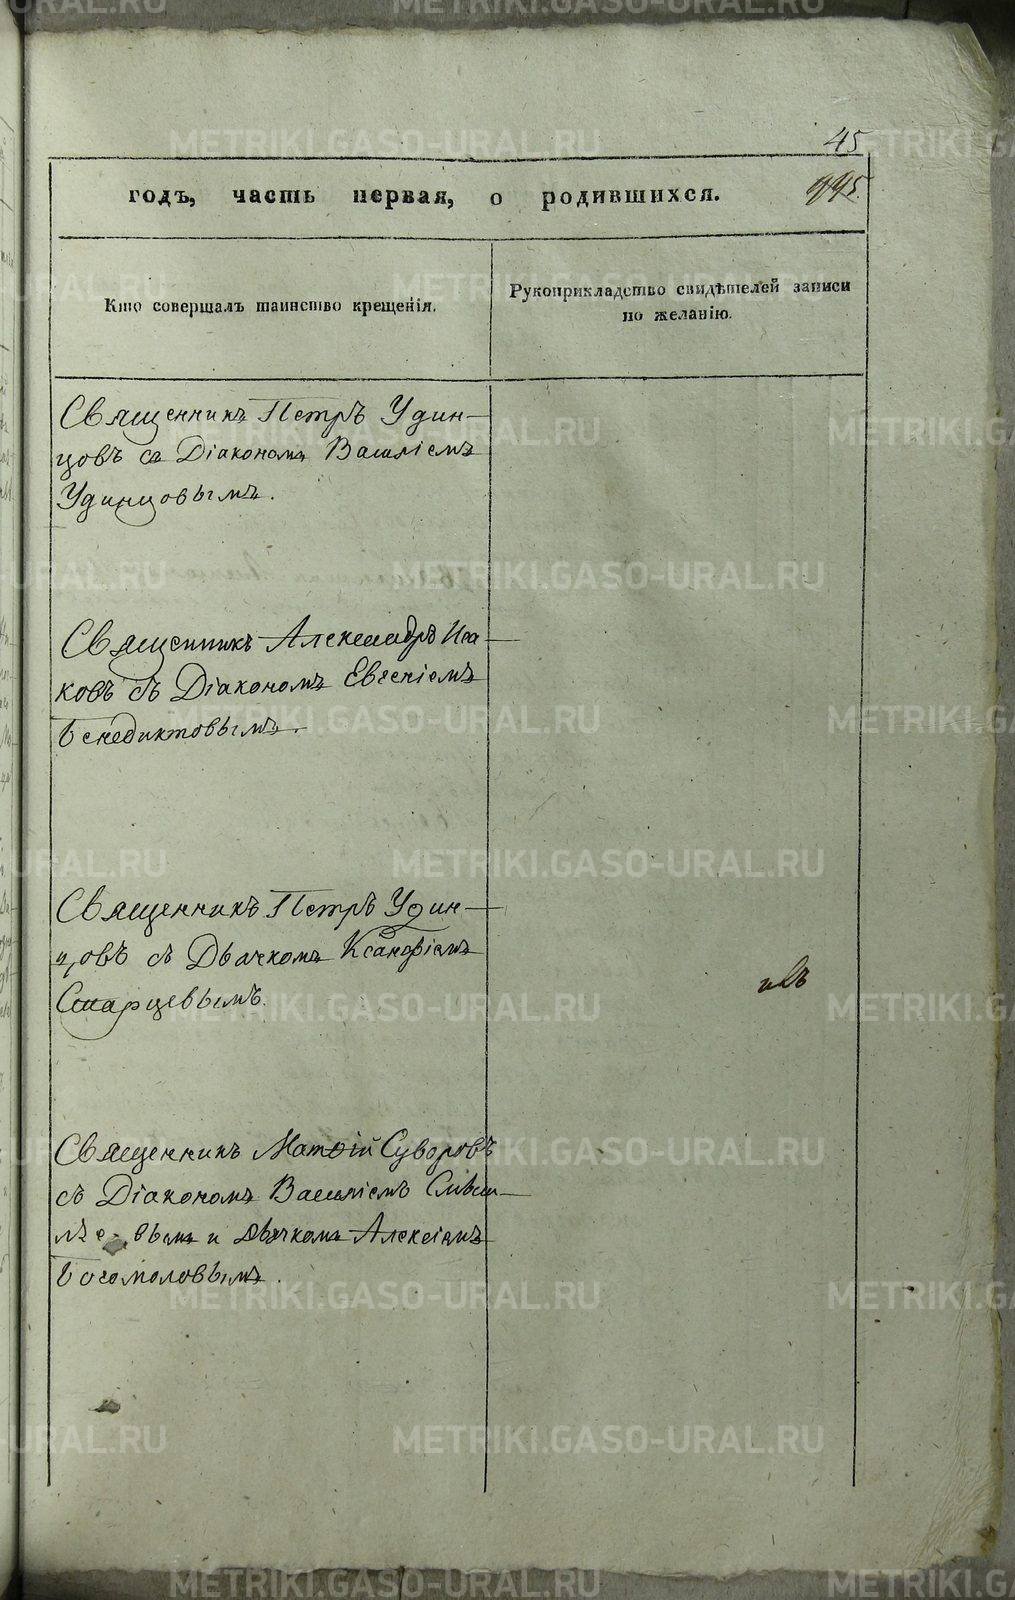 45
годъ, часть первая, о родившихся.
Кто совершалъ таинство крещенія.
Рукоприкладство свидѣтелей записи
по желанію.
Священникъ Петръ Удин-
цовъ съ Діакономъ Василіемъ
Удинцовымъ.
Священникъ Александръ Иса-
ковъ съ Діакономъ Евгеніемъ
Бенедиктовымъ.
Священникъ Петръ Удин-
цовъ съ Дьячкомъ Ксанфіемъ
Старцевымъ.
Священникъ Матѳій Суворовъ
съ Діакономъ Василіемъ
и Дьячкомъ Алексіемъ
Богомоловымъ.
METRIKI.GASO-URAL.RU